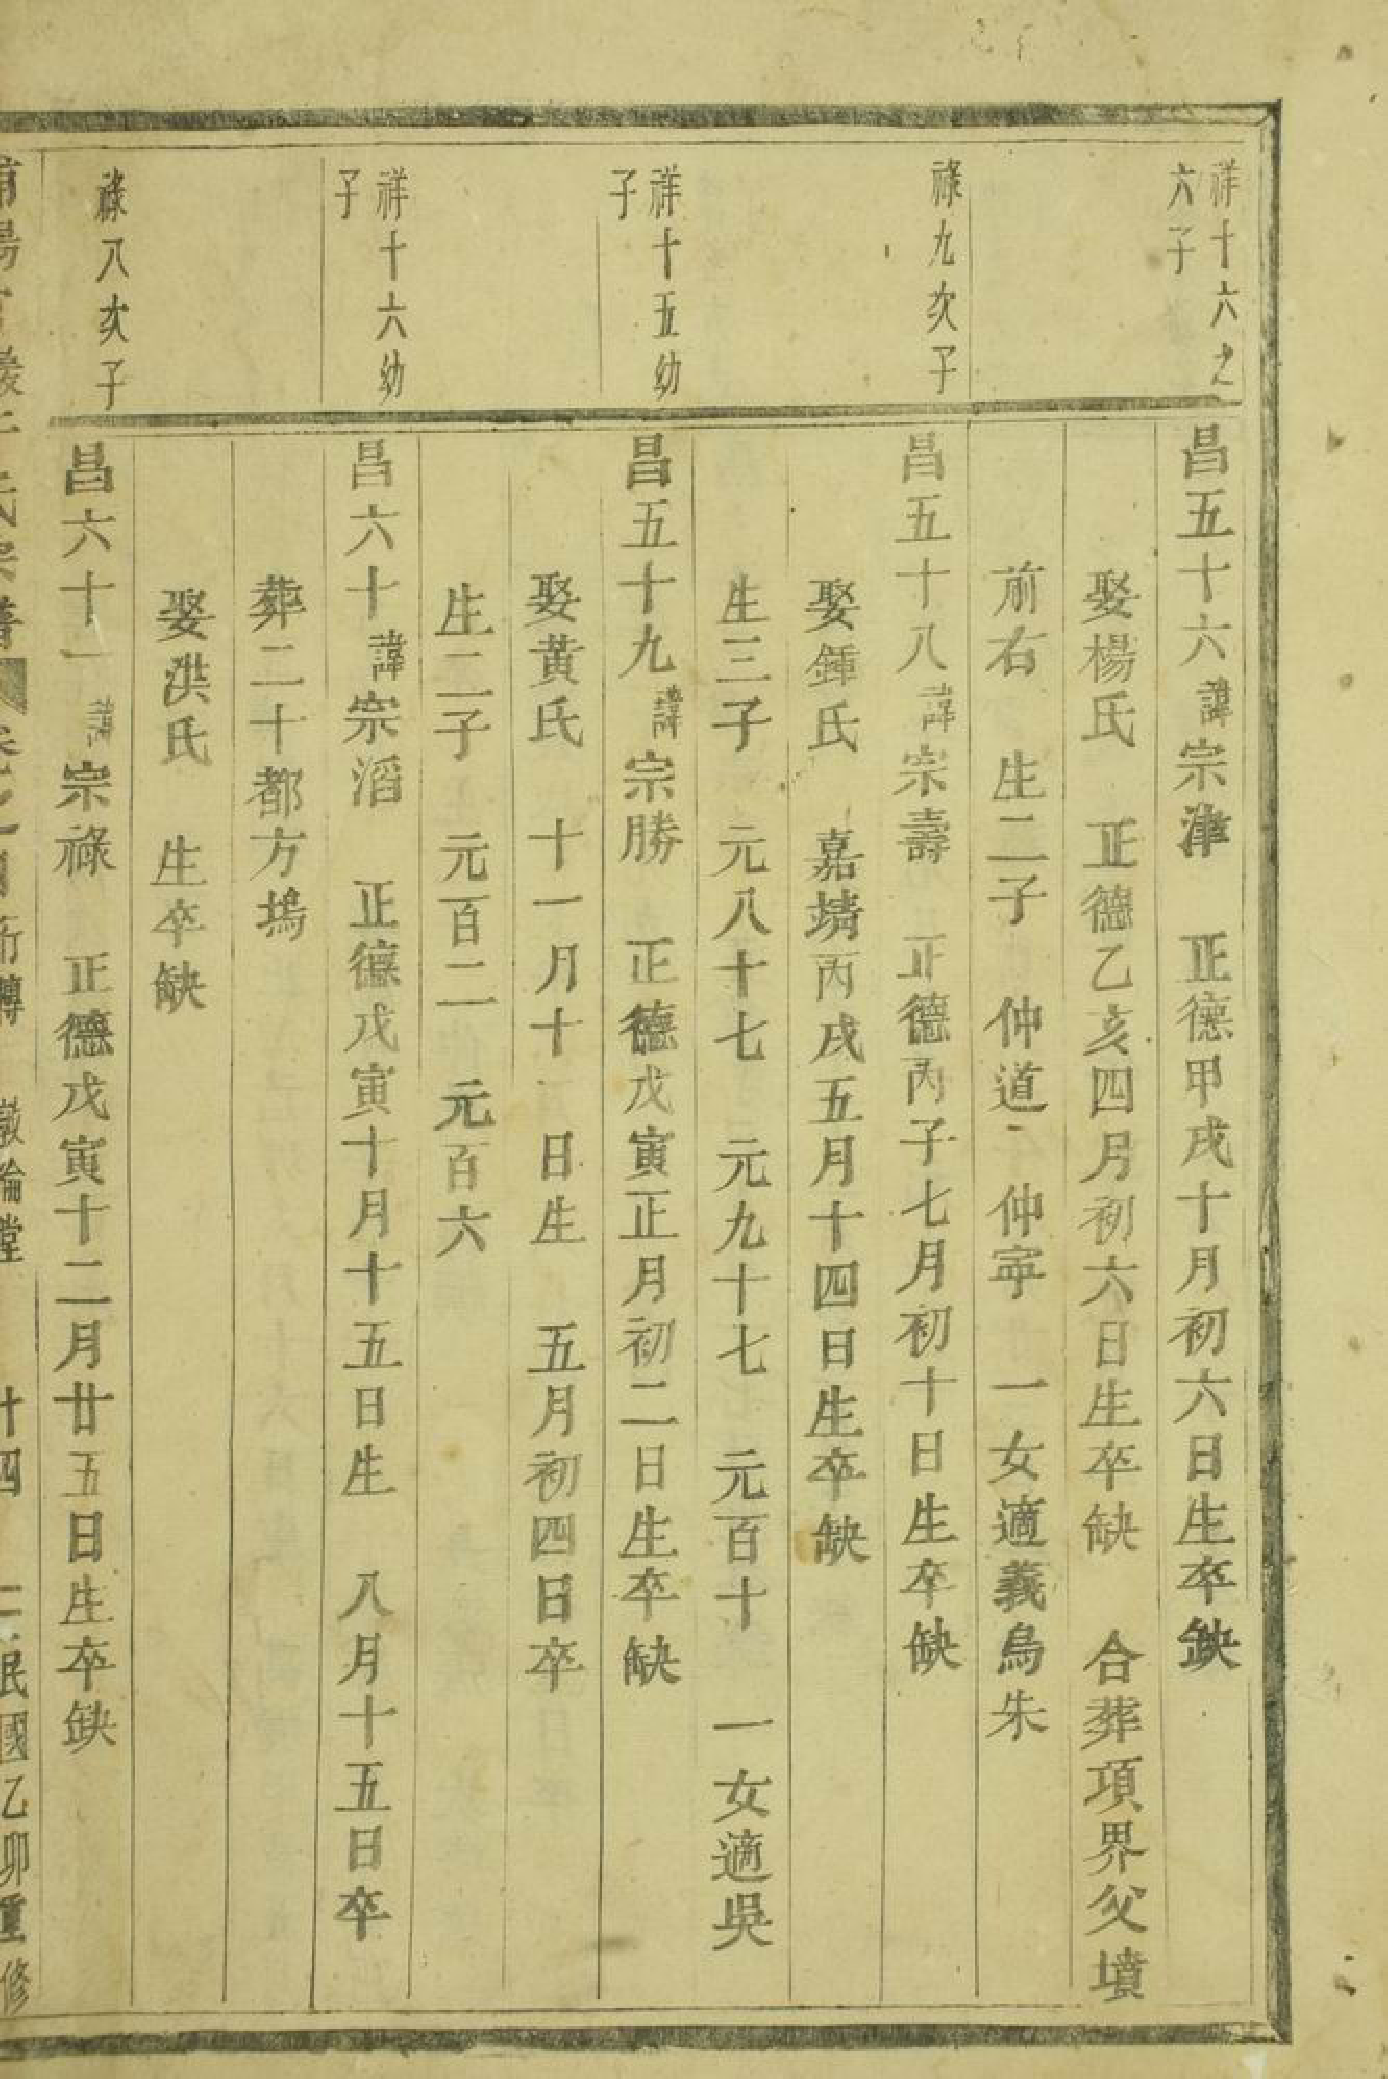 祥十六之
六子
昌五十六諱宗津　正德甲戌十月初六日生卒缺
娶楊氏　正德乙亥四月初六日生卒缺　合葬項界父墳
前右　生二子　仲道　仲寧　一女適義烏朱
祿九次子
昌五十八諱宗壽　正德丙子七月初十日生卒缺
娶鍾氏　嘉靖丙戌五月十四日生卒缺
生三子　元八十七　元九十七　元百十　一女適吳
祥十五幼
子
昌五十九諱宗勝　正德戊寅正月初二日生卒缺
娶黃氏　十一月十一日生　五月初四日卒
生二子　元百二　元百六
祥十六幼
子
昌六十諱宗滔　正德戊寅十月十五日生　八月十五日卒
葬二十都方塢
娶洪氏　生卒缺
祿八次子
昌六十一諱宗祿　正德戊寅十二月廿五日生卒缺
氏宗譜　行傳　敦倫堂　廿四　民國乙卯重修